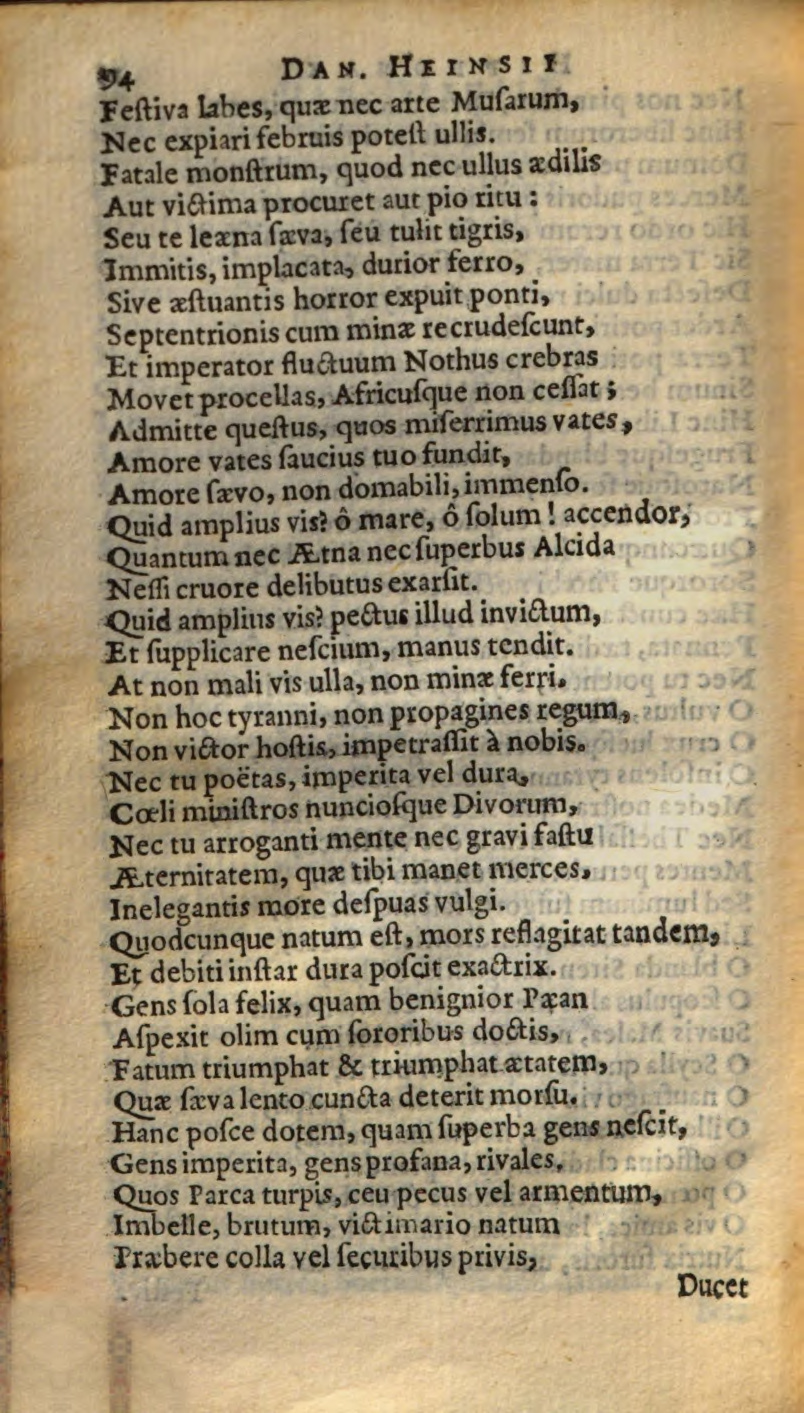 94 DAN. HEINSII
Feſtiva labes, quæ nec arte Muſarum,
Nec expiari februis poteſt ullis.
Fatale monſtrum, quod nec ullus ædilis
Aut victima procuret aut pio ritu :
Seu te leæna ſæva, ſeu tulit tigris,
Immitis, implacata, durior ferro,
Sive æſtuantis horror expuit ponti,
Septentrionis cum minæ recrudeſcunt,
Et imperator fluctuum Nothus crebras
Movet procellas, Africuſque non ceſſat ;
Admitte queſtus, quos miſerrimus vates,
Amore vates ſaucius tuo fundit,
Amore ſævo, non domabili, immenſo.
Quid amplius vis? ô mare, ô ſolum ! accendor,
Quantum nec Ætna nec ſuperbus Alcida
Neſſi cruore delibutus exarſit.
Quid amplius vis? pectus illud invictum,
Et ſupplicare neſcium, manus tendit.
At non mali vis ulla, non minæ ferri.
Non hoc tyranni, non propagines regum,
Non victor hoſtis, impetraſſit à nobis.
Nec tu poëtas, imperita vel dura,
Cœli miniſtros nuncioſque Divorum,
Nec tu arroganti mente nec gravi faſtu
Æternitatem, quæ tibi manet merces,
Inelegantis more deſpuas vulgi.
Quodcunque natum eſt, mors reflagitat tandem,
Et debiti inſtar dura poſcit exactrix.
Gens ſola felix, quam benignior Pæan
Aſpexit olim cum ſororibus doctis,
Fatum triumphat & triumphat ætatem,
Quæ ſæva lento cuncta deterit morſu.
Hanc poſce dotem, quam ſuperba gens neſcit,
Gens imperita, gens profana, rivales.
Quos Parca turpis, ceu pecus vel armentum,
Imbelle, brutum, victimario natum
Præbere colla vel ſecuribus privis,
Ducet